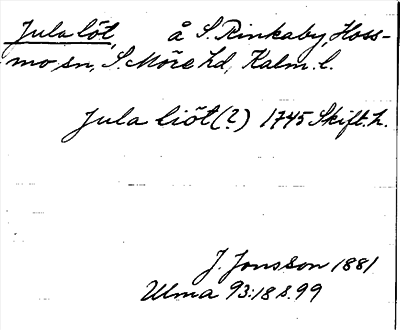 Jula löt, å S. Rinkaby, Hoss-
mo sn, S. Möre hd, Kalm. l.
Jula liöt (?) 1745 Skift.h.
J. Jonsson 1881
Ulma 93:18 s. 99